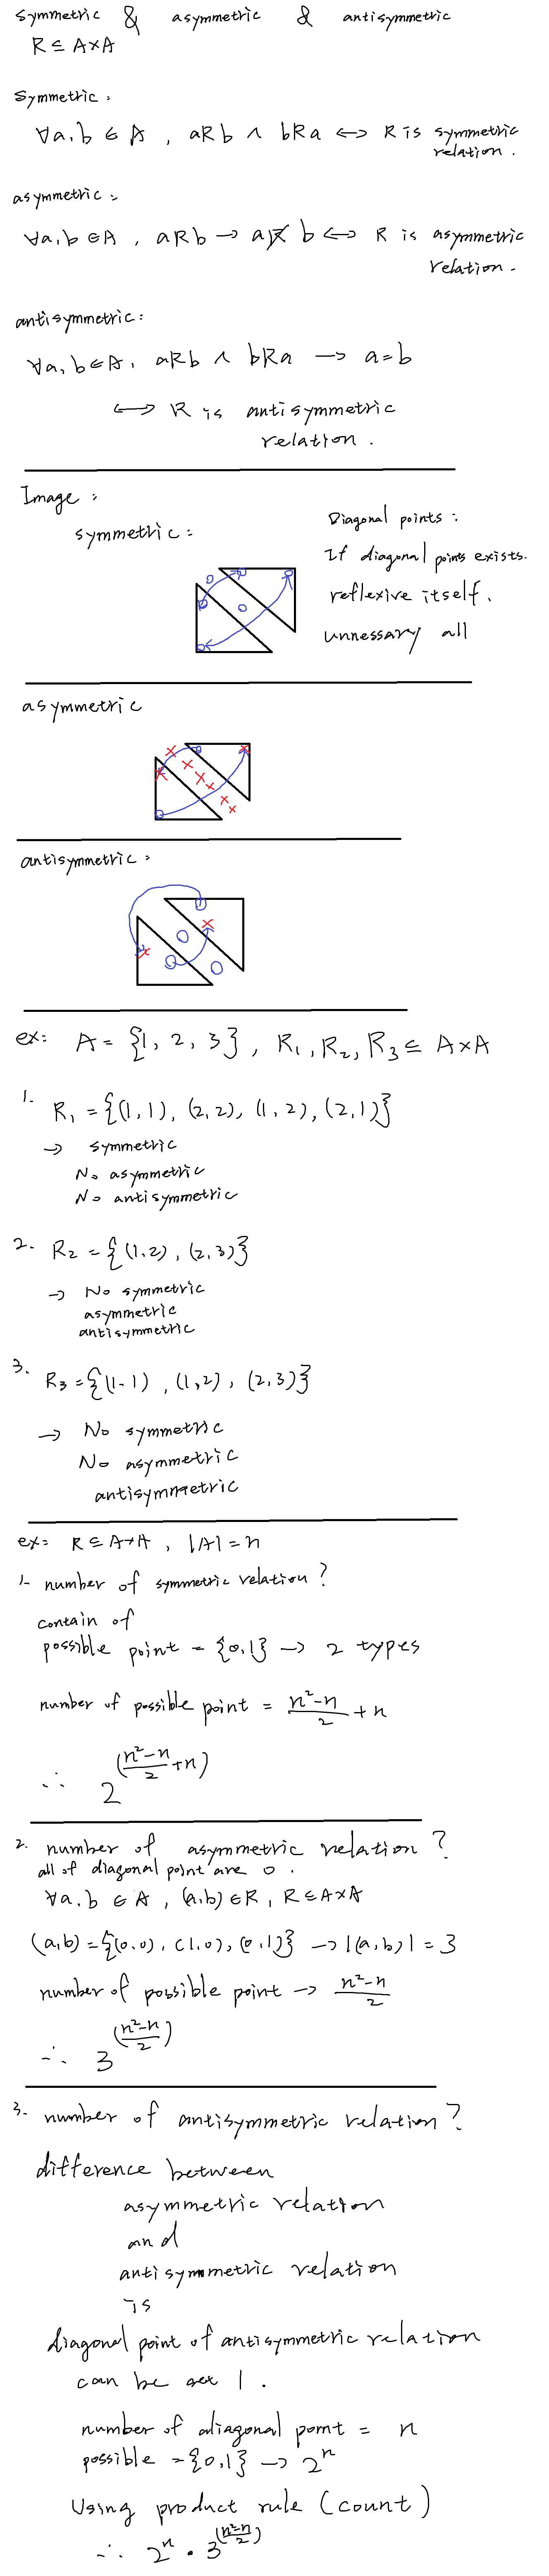 symmetric & asymmetric & antisymmetric
R ⊆ A×A
Symmetric:
∀a,b ∈ A, aRb ∧ bRa ↔ R is symmetric
relation.
asymmetric:
∀a,b ∈A, aRb → aR̸b ↔ R is asymmetric
relation.
antisymmetric:
∀a,b∈A, aRb ∧ bRa → a=b
↔ R is antisymmetric
relation.
Image:
symmetric:
Diagonal points:
If diagonal points exists.
reflexive itself.
unnessary all
asymmetric
antisymmetric:
ex: A = {1, 2, 3}, R₁, R₂, R₃ ⊆ A×A
1. R₁ = {(1,1), (2,2), (1,2), (2,1)}
→ symmetric
No asymmetric
No antisymmetric
2. R₂ = {(1,2), (2,3)}
→ No symmetric
asymmetric
antisymmetric
3. R₃ = {(1-1), (1,2), (2,3)}
→ No symmetric
No asymmetric
antisymmetric
ex: R ⊆ A×A, |A| = n
1- number of symmetric relation?
contain of
possible point = {0,1} → 2 types
number of possible point = (n²-n)/2 + n
∴ 2^((n²-n)/2 +n)
2. number of asymmetric relation?
all of diagonal point are 0.
∀a,b ∈ A, (a,b) ∈ R, R ⊆ A×A
(a,b) = {(0,0), (1,0), (0,1)} → |(a,b)| = 3
number of possible point → (n²-n)/2
∴ 3^((n²-n)/2)
3. number of antisymmetric relation?
difference between
asymmetric relation
and
antisymmetric relation
is
diagonal point of antisymmetric relation
can be set 1.
number of diagonal point = n
possible = {0,1} → 2ⁿ
Using product rule (count)
∴ 2ⁿ · 3^((n²-n)/2)